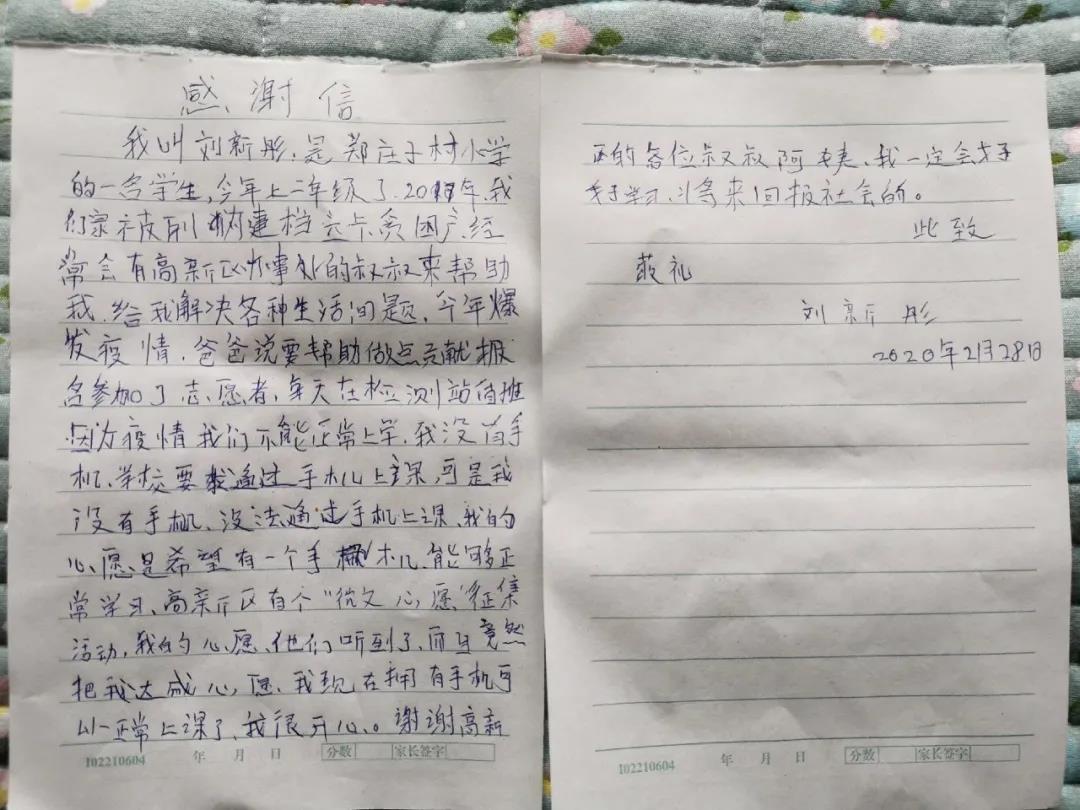 感谢信
我叫刘新彤,是郑庄子村小学
的一名学生,今年上二年级了.2017年,我
们家被列纳建档立卡贫困户,经
常会有高新区办事处的叔叔来帮助
我,给我解决各种生活问题,今年爆
发疫情,爸爸说要帮助做点贡献报
名参加了志愿者,每天在检测站值班
因为疫情我们不能正常上学,我没有手
机、学校要求通过手机上课,可是我
没有手机、没法通过手机上课、我的
心愿是希望有一个手机、能够正
常学习、高新区有个“微文心愿”征集
活动,我的心愿、他们听到了,而且竟然
把我达成心愿、我现在拥有手机可
以正常上课了,我很开心。谢谢高新
102210604 年 月 日 分数 家长签字
区的各位叔叔阿姨、我一定会好
好学习、将来回报社会的。
此致
敬礼
刘新彤
2020年2月28日
102210604 年 月 日 分数 家长签字